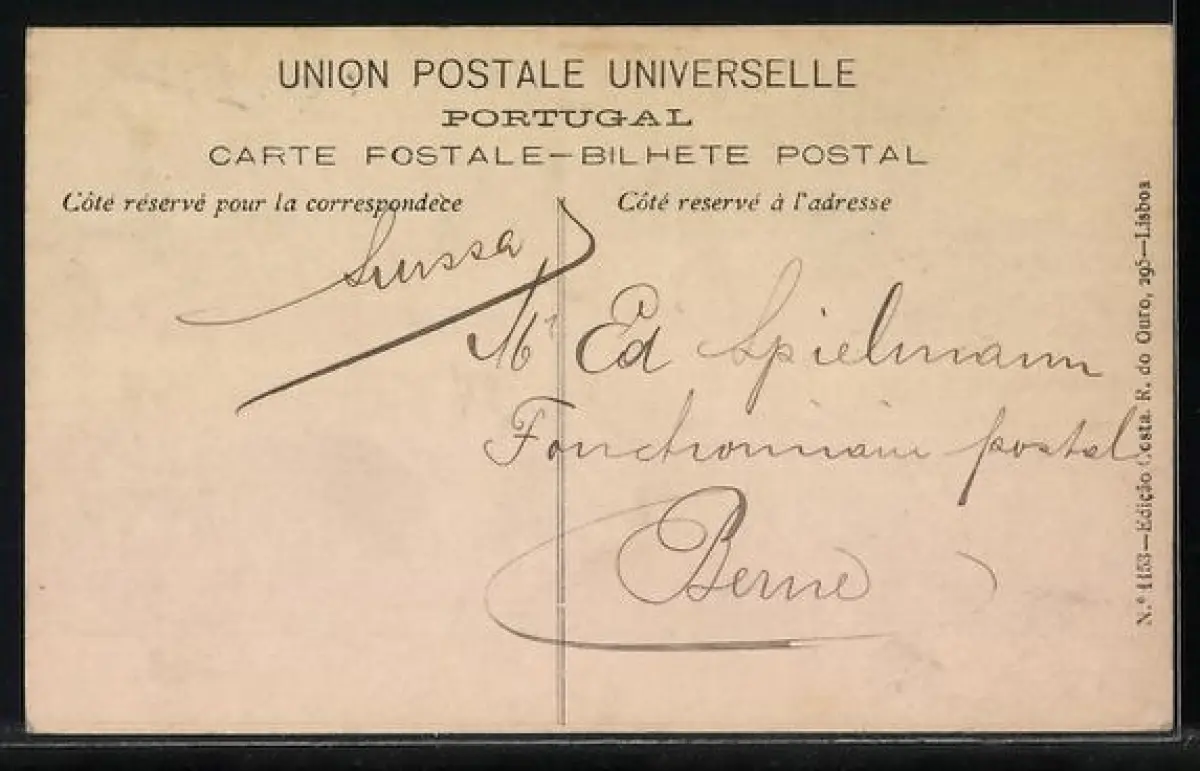 UNION POSTALE UNIVERSELLE
PORTUGAL
CARTE POSTALE—BILHETE POSTAL
Côté réservé pour la correspondece
Côté reservé à l'adresse
Suissa
Mr Ed Spielmann
Fonctionnaire postal
Berne
N.º 1153—Edição Costa. R. do Ouro, 295—Lisboa